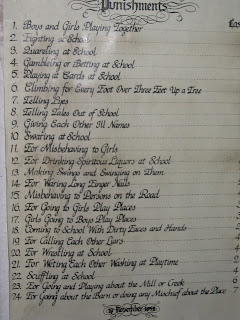 Punishments
1. Boys and Girls Playing Together
2. Fighting at School
3. Quareling at School
4. Gambleing or Betting at School
5. Playing at Cards at School
6. Climbing for Every Foot Over Three Feet Up a Tree
7. Telling Lyes
8. Telling Tales Out of School
9. Giving Each Other Ill Names
10. Swaring at School
11. For Misbehaving to Girls
12. For Drinking Spirituous Liquors at School
13. Making Swings and Swinging on Them
14. For Waring Long Finger Nails
15. Misbehaving to Persons on the Road
16. For Going to Girls Play Places
17. Girls Going to Boys Play Places
18. Coming to School With Dirty Faces and Hands
19. For Calling Each Other Liars
20. For Wrestling at School
21. For Weting Each Other Washing at Playtime
22. Scuffling at School
23. For Going and Playing about the Mill or Creek
24. For Going about the Barn or doing any Mischief about the Place